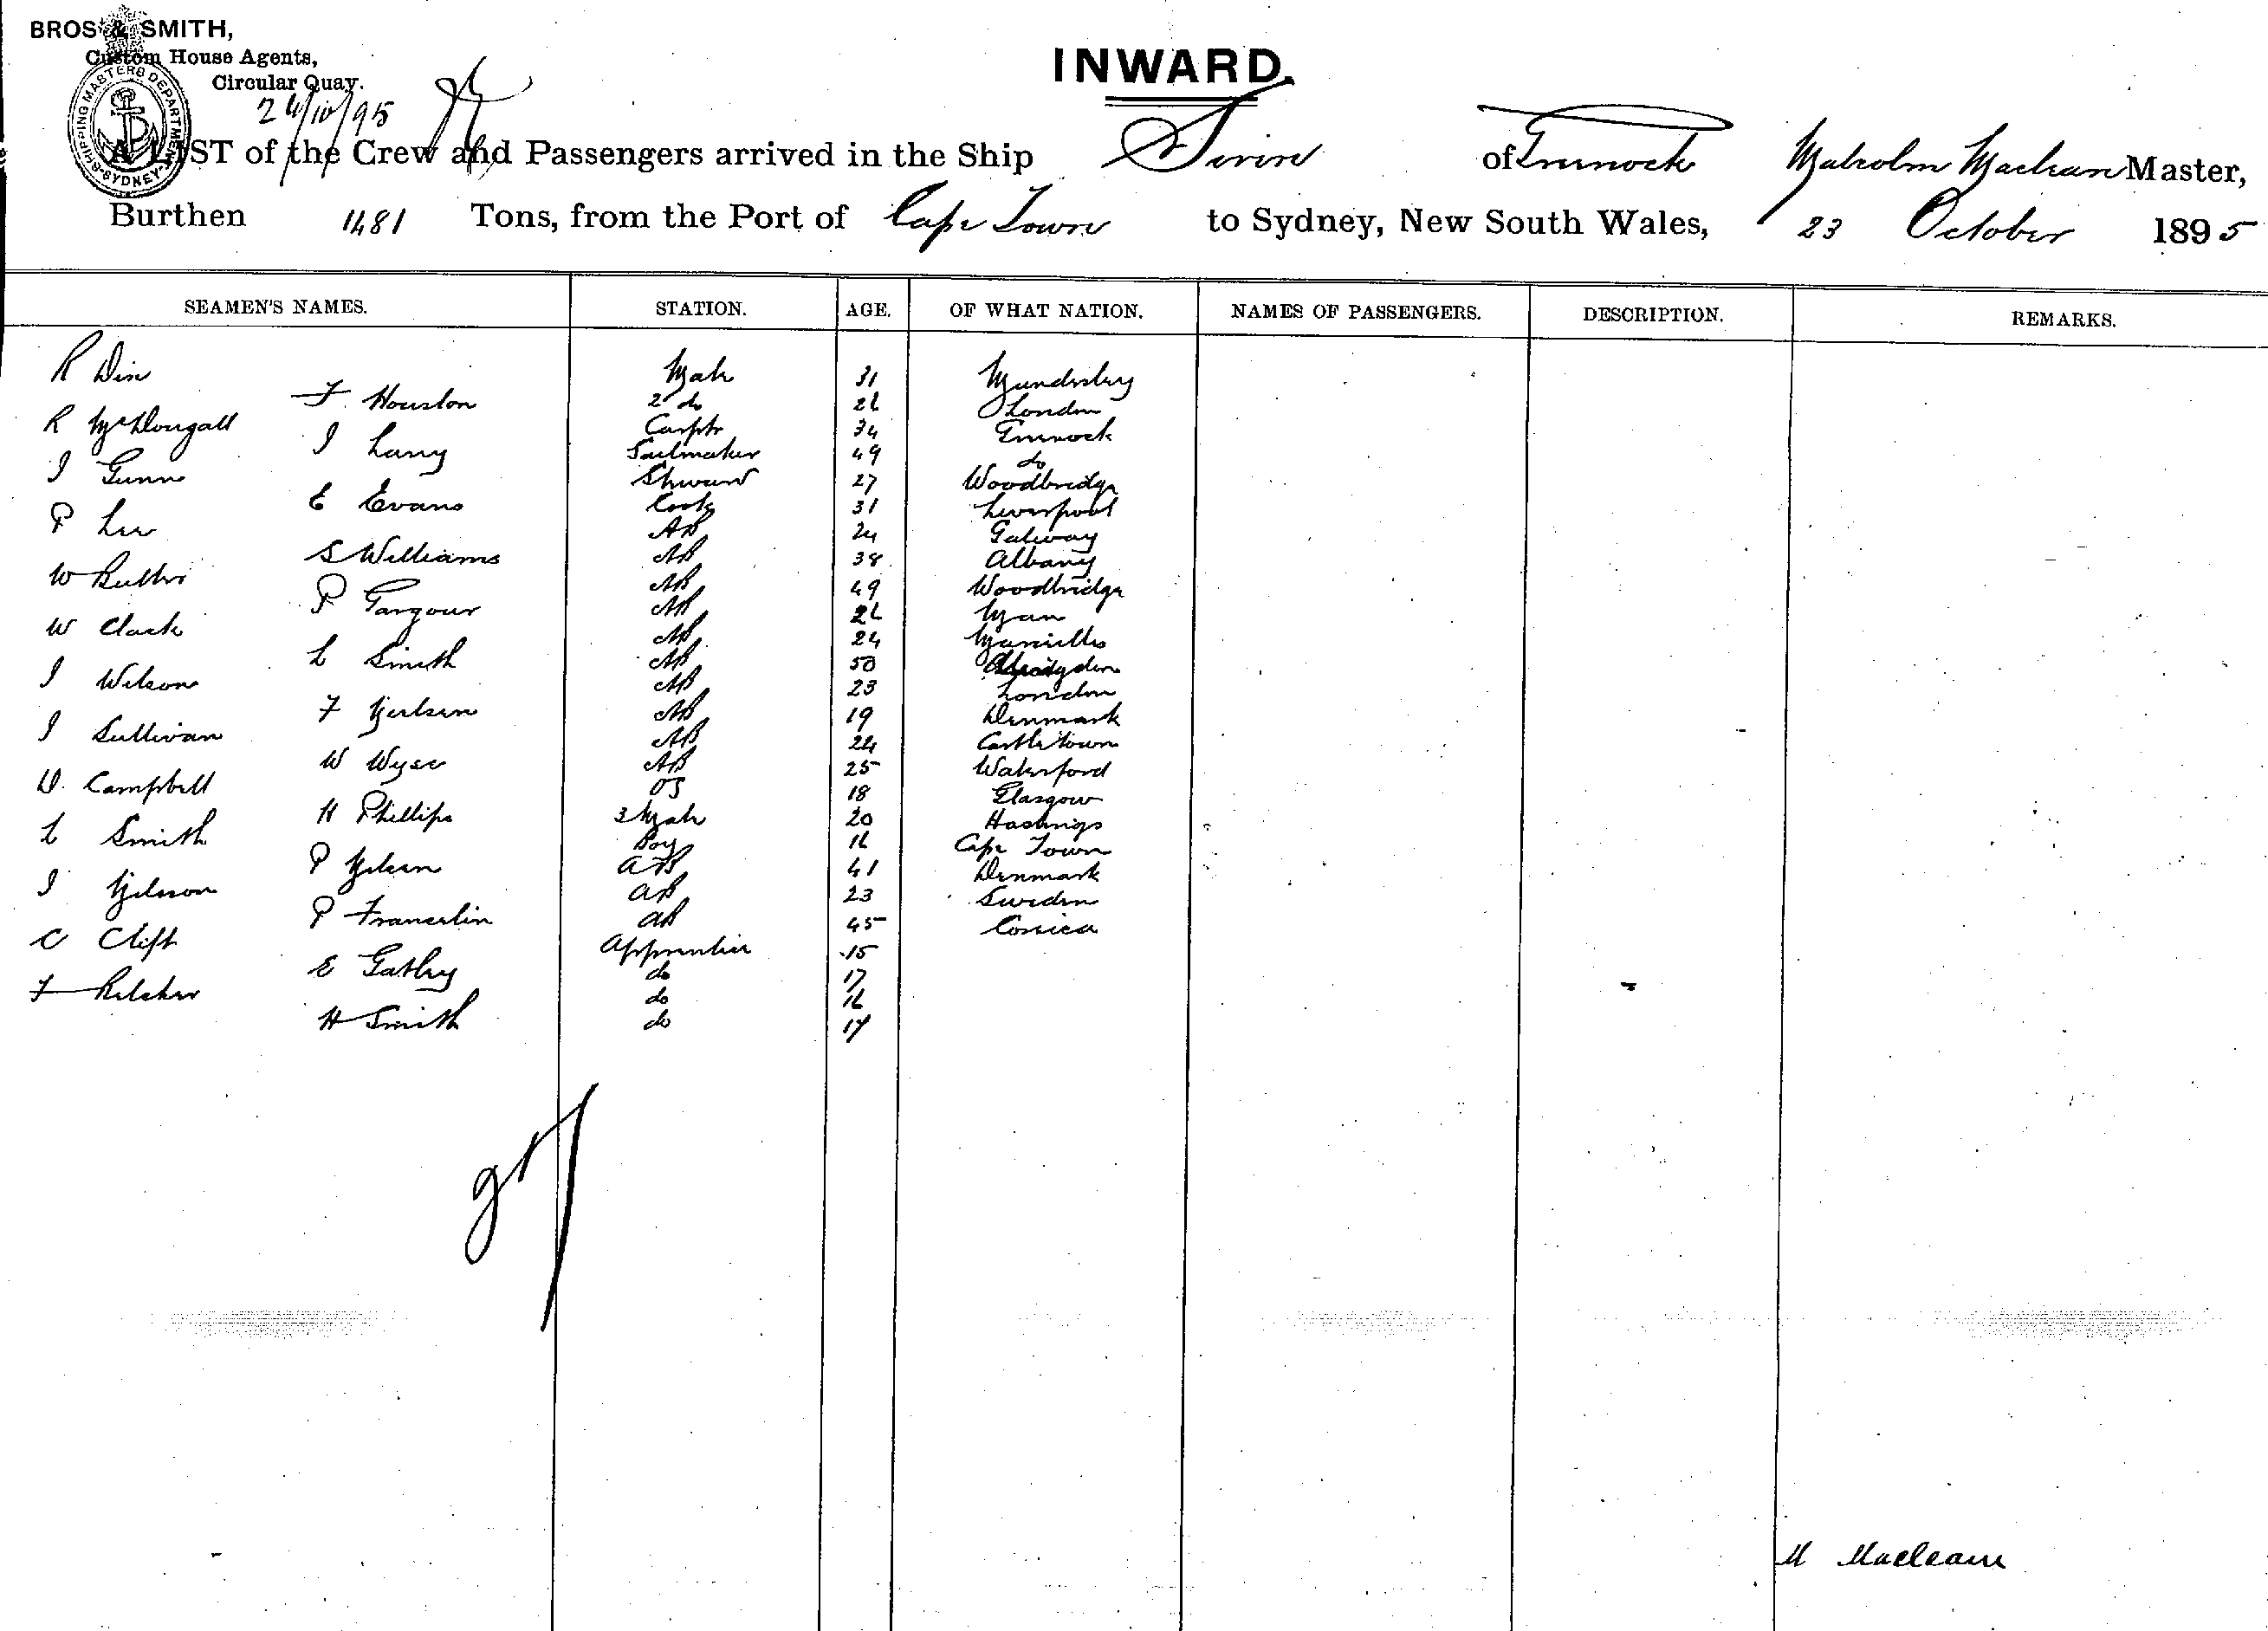 BROS & SMITH,
Custom House Agents,
Circular Quay.
SHIPPING MASTERS DEPARTMENT SYDNEY
24/10/95
INWARD.
A LIST of the Crew and Passengers arrived in the Ship of Greenock Malcolm Maclean Master,
Burthen 1481 Tons, from the Port of Cape Town to Sydney, New South Wales, 23 October 1895
SEAMEN'S NAMES. STATION. AGE. OF WHAT NATION. NAMES OF PASSENGERS. DESCRIPTION. REMARKS.
R Mate 31 Mundesley
F. Houston 2 do 26 London
R McDougall Carptr 34 Greenock
J Lang Sailmaker 49 do
J Gunn Steward 27 Woodbridge
E Evans Cook 31 Liverpool
P Lee AB 24 Galway
S Williams AB 38 Albany
W Butler AB 49 Woodbridge
P Gargour AB 26 Man
W Clark AB 24 Marseilles
L Smith AB 50
J Wilson AB 23 London
F Nielsen AB 19 Denmark
J Sullivan AB 24 Castletown
W Wyse AB 25 Waterford
D. Campbell OS 18 Glasgow
H Phillips 3 Mate 20 Hastings
L Smith Boy 16 Cape Town
P Nelsen AB 41 Denmark
J Nelson AB 23 Sweden
P Francelin AB 45 Corsica
C Clift Apprentice 15
E Gatley do 17
F do 16
H Smith do 17
M Macleane